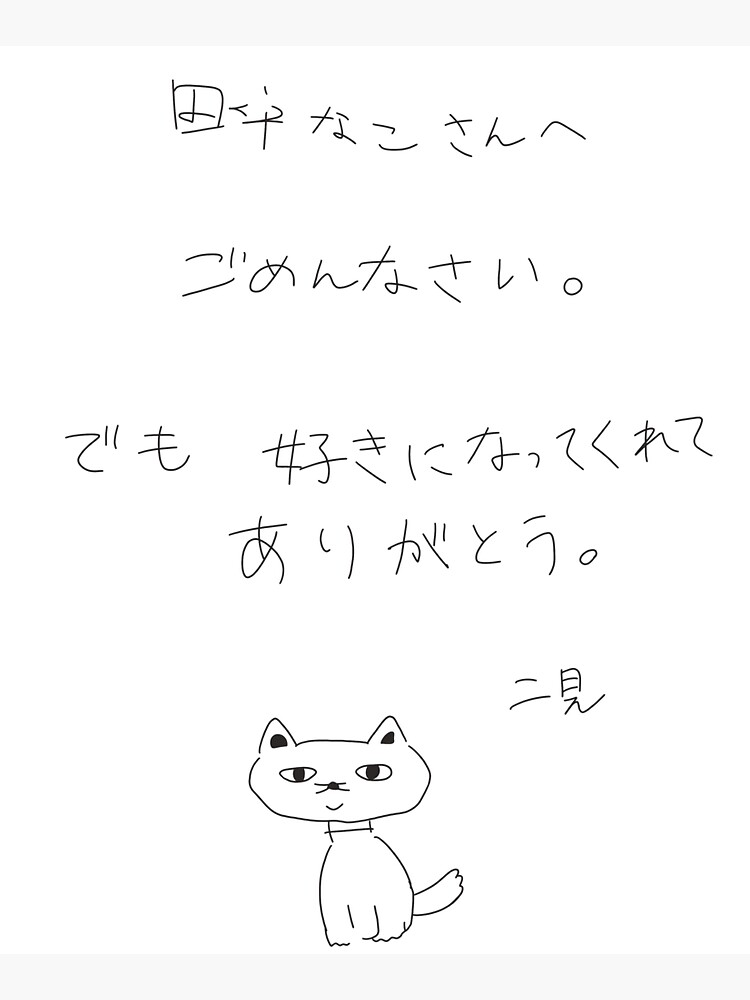 なこさんへ
ごめんなさい。
でも 好きになってくれて
ありがとう。
二見